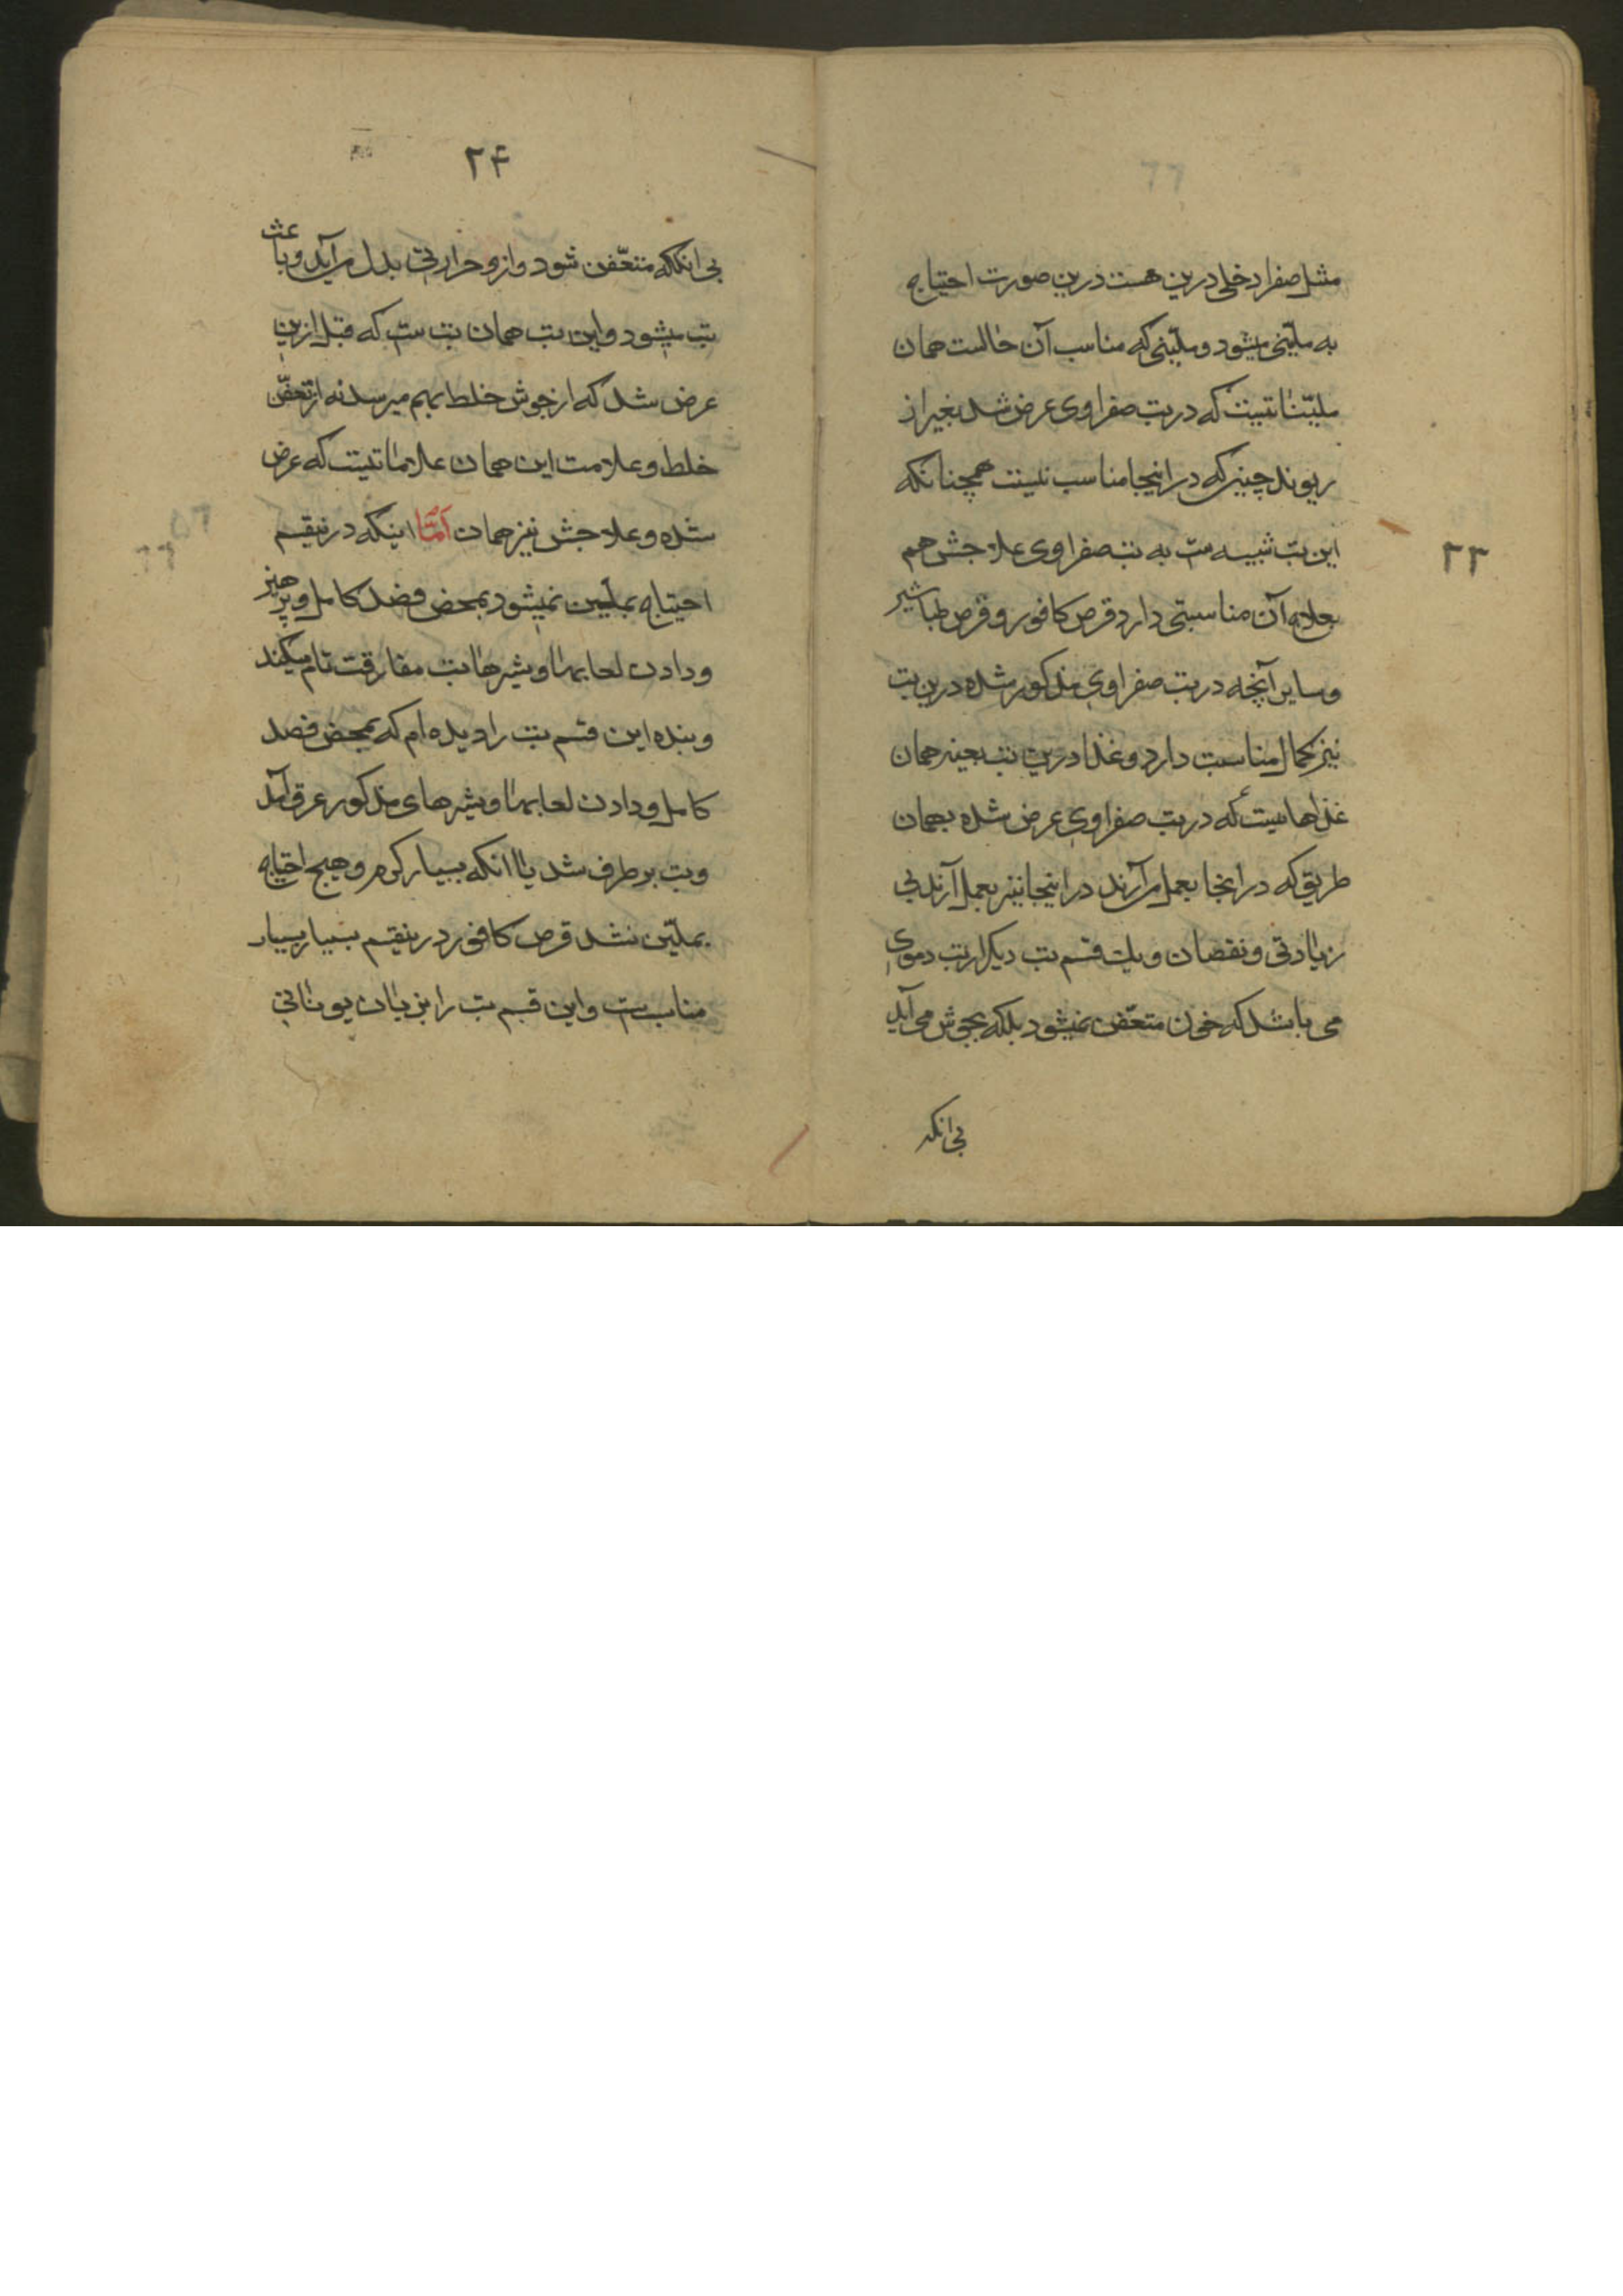 مثل صفرا دخلی درین هست درین صورت احتیاج
به ملیّنی میشود و ملیّنی که مناسب آن حالست همان
ملیّناتیست که در تب صفراوی عرض شد بغیر از
ریوند چینی که در اینجا مناسب نیست همچنانکه
این تب شبیه ست به تب صفراوی علاجش هم
بعلاج آن مناسبتی دارد قرص کافور و قرص طباشیر
و سایر آنچه در تب صفراوی مذکور شده درین تب
نیز کمال مناسبت دارد و غذا درین تب بعینه همان
غذاهاییست که در تب صفراوی عرض شده بهمان
طریق که در انجا بعمل می‌آرند در اینجا نیز بعمل آرند بی
زیادتی و نقصان و یک قسم تب دیگر از تب دموی
می باشد که خون متعفّن نمیشود بلکه بجوش می آید
بی انکه
۲۳
۲۴
بی انکه متعّفن شود و ازو حرارتی بدل می‌آید و باعث
تب میشود و این تب همان تب ست که قبل ازین
عرض شد که از جوش خلط بهم میرسد نه از تعفّن
خلط و علامت این همان علاماتیست که عرض
شده و علاجش نیز همان امّا اینکه درینقسم
احتیاج بملیّن نمیشود بمحض فصد کامل و پرهیز
و دادن لعابها و شیرها تب مفارقت تام میکند
و بنده این قسم تب را دیده ام که بمحض فصد
کامل و دادن لعابها و شیرهای مذکور عرق آمد
و تب بر طرف شد با انکه بسیار گرم و هیچ احتیاج
بملیّن نشد قرص کافور درینقسم بسیار بسیار
مناسب ست و این قسم تب را بزبان یونانی